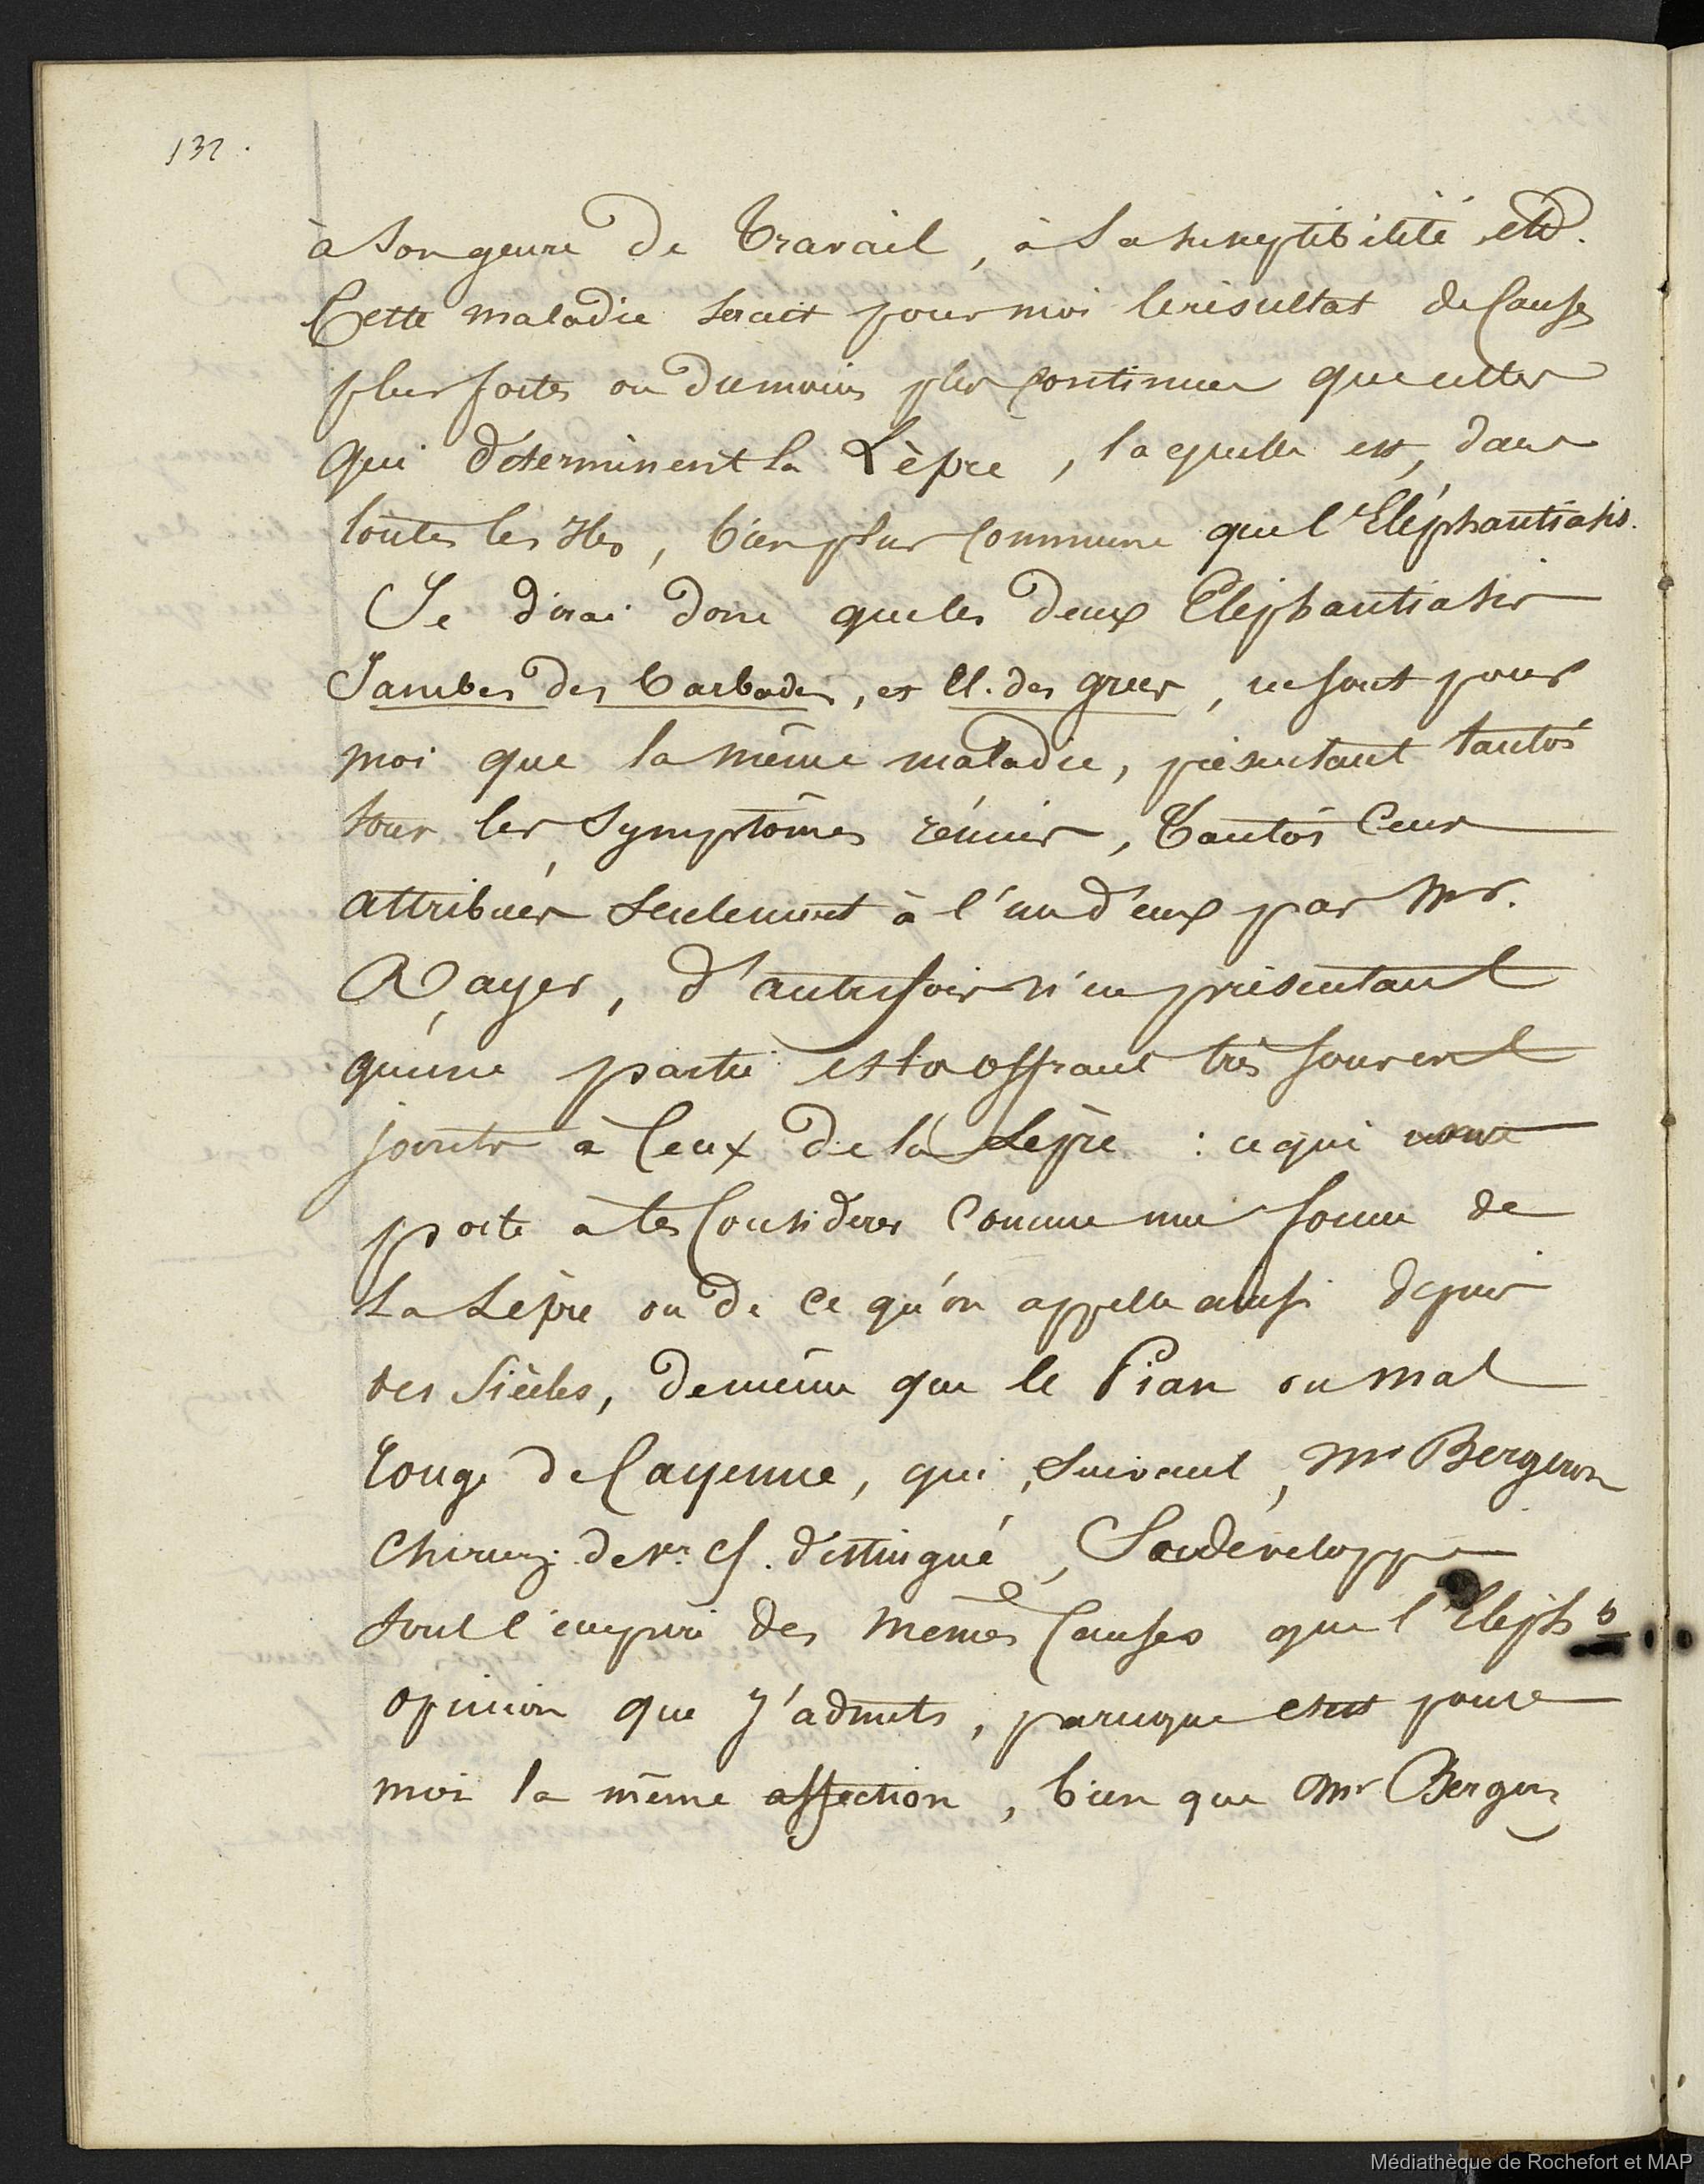 132.
à son genre de Travail, à sa suseptibilité etc.
Cette maladie serait pour moi le résultat de Causes
plus fortes ou du moins plus continues que celles
qui déterminent la Lèpre, laquelle est, dans
toutes les Iles, bien plus commune que l'Eléphantiasis.
Je dirai donc que les deux Elephantiasis
Jambes des barbades, et El. des grecs, ne sont pour
moi que la même maladie, présentant tantôt
tous les Symptômes réunis, Tantôt ceux
attribués seulement à l'un d'eux par Mr.
Rayer, d'autres fois n'en présentant
qu'une partie et les offrant très souvent
joints à Ceux de la Lèpre : ce qui
porte à les Considérer comme une forme de
La Lèpre ou de ce qu'on appelle ainsi depuis
des Siècles, de même que le Pian ou mal
rouge de Cayenne, qui, suivant, Mr Bergeron
Chirurg. de distingué, Se développe
sous l'empire des mêmes Causes que l'Eleph.s
opinion que j'admets, parceque c'est pour
moi la même affection, bien que Mr Bergeron
Médiathèque de Rochefort et MAP